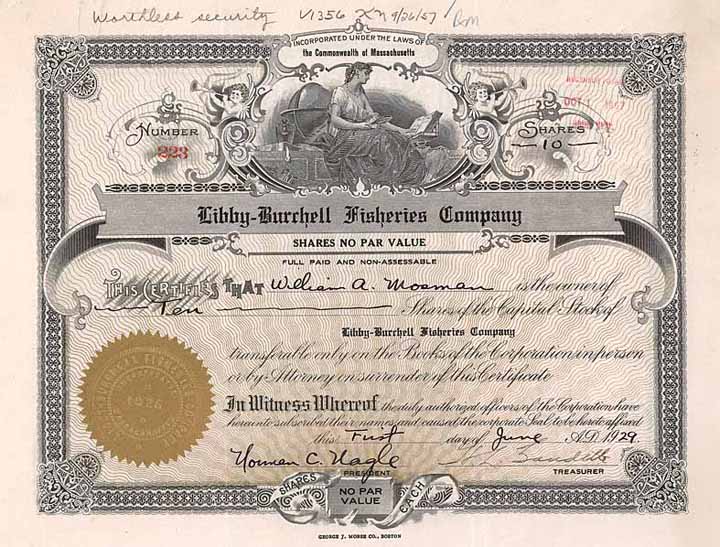 Worthless security V1356 9/26/57
INCORPORATED UNDER THE LAWS OF
the Commonwealth of Massachusetts
NUMBER
223
OCT 1 1957
SHARES
10
Libby-Burchell Fisheries Company
SHARES NO PAR VALUE
FULL PAID AND NON-ASSESSABLE
THIS CERTIFIES THAT William A. Mosman is the owner of
Ten Shares of the Capital Stock of
Libby-Burchell Fisheries Company
transferable only on the Books of the Corporation in person
or by Attorney on surrender of this Certificate
In Witness Whereof the duly authorized officers of the Corporation have
hereunto subscribed their names and caused the corporate Seal to be hereto affixed
this First day of June A.D. 1929
Norman C. Nagle
PRESIDENT
TREASURER
1926
SHARES NO PAR VALUE EACH
GEORGE J. MORSE CO., BOSTON